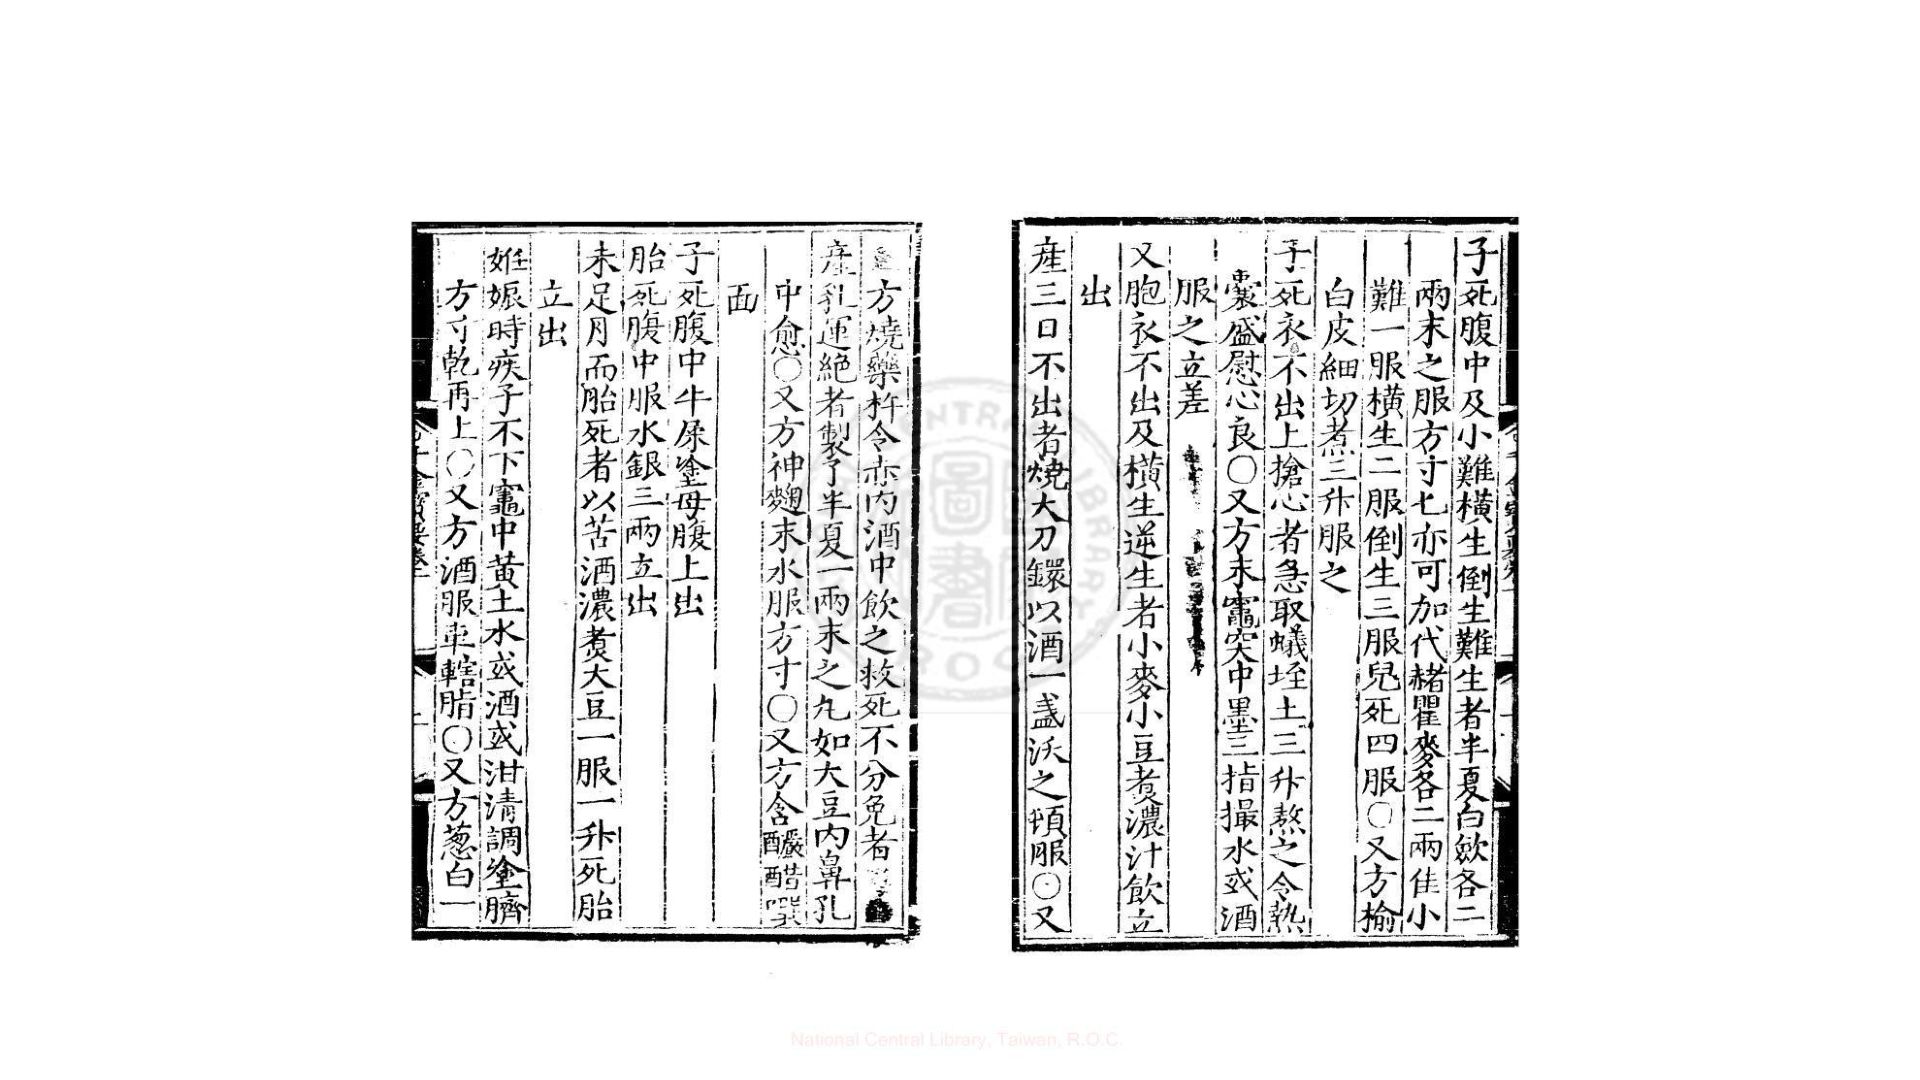 子死腹中及小難橫生倒生難生者半夏白歛各二
兩末之服方寸匕亦可加代赭瞿麥各二兩佳小
難一服橫生二服倒生三服兒死四服〇又方榆
白皮細切煮三升服之
子死衣不出上搶心者急取蟻垤土三升熬之令熱
囊盛慰心良〇又方末竈突中墨三指撮水或酒
服之立差
又胞衣不出及橫生逆生者小麥小豆煑濃汁飲立
出
産三日不出者燒大刀鐶以酒一盞沃之頓服〇又
方燒藥杵令赤内酒中飲之救死不分免者
産乳運絶者製了半夏一兩末之丸如大豆内鼻孔
中愈〇又方神麴末水服方寸〇又方含釅醋噀
面
子死腹中牛屎塗母腹上出
胎死腹中服水銀三兩立出
未足月而胎死者以苦酒濃煑大豆一服一升死胎
立出
姙娠時疾子不下竈中黄土水或酒或泔清調塗臍
方寸乾再上〇又方酒服車轄脂〇又方葱白一
National Central Library, Taiwan, R.O.C.